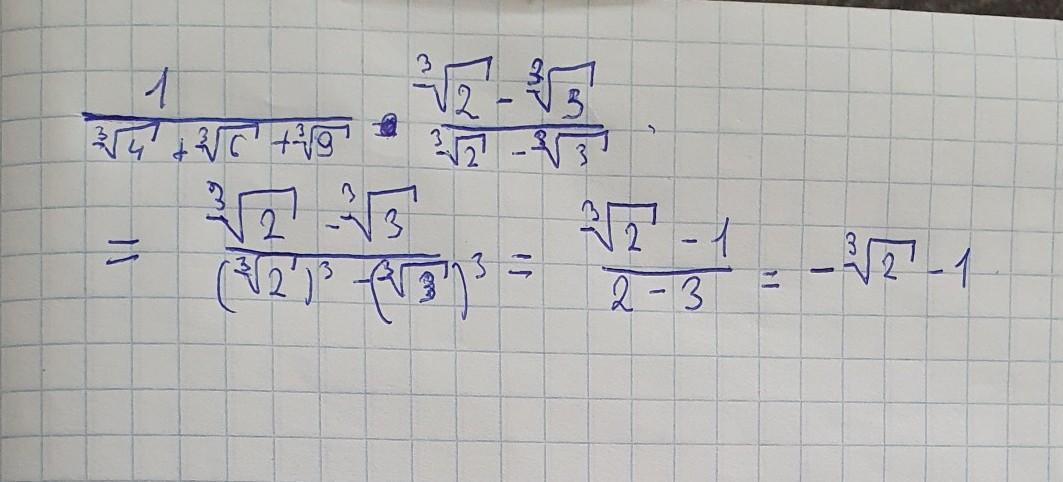 \frac{1}{\sqrt[3]{4} + \sqrt[3]{6} + \sqrt[3]{9}} \cdot \frac{\sqrt[3]{2} - \sqrt[3]{3}}{\sqrt[3]{2} - \sqrt[3]{3}}
= \frac{\sqrt[3]{2} - \sqrt[3]{3}}{(\sqrt[3]{2})^3 - (\sqrt[3]{3})^3} = \frac{\sqrt[3]{2} - 1}{2 - 3} = -\sqrt[3]{2} - 1